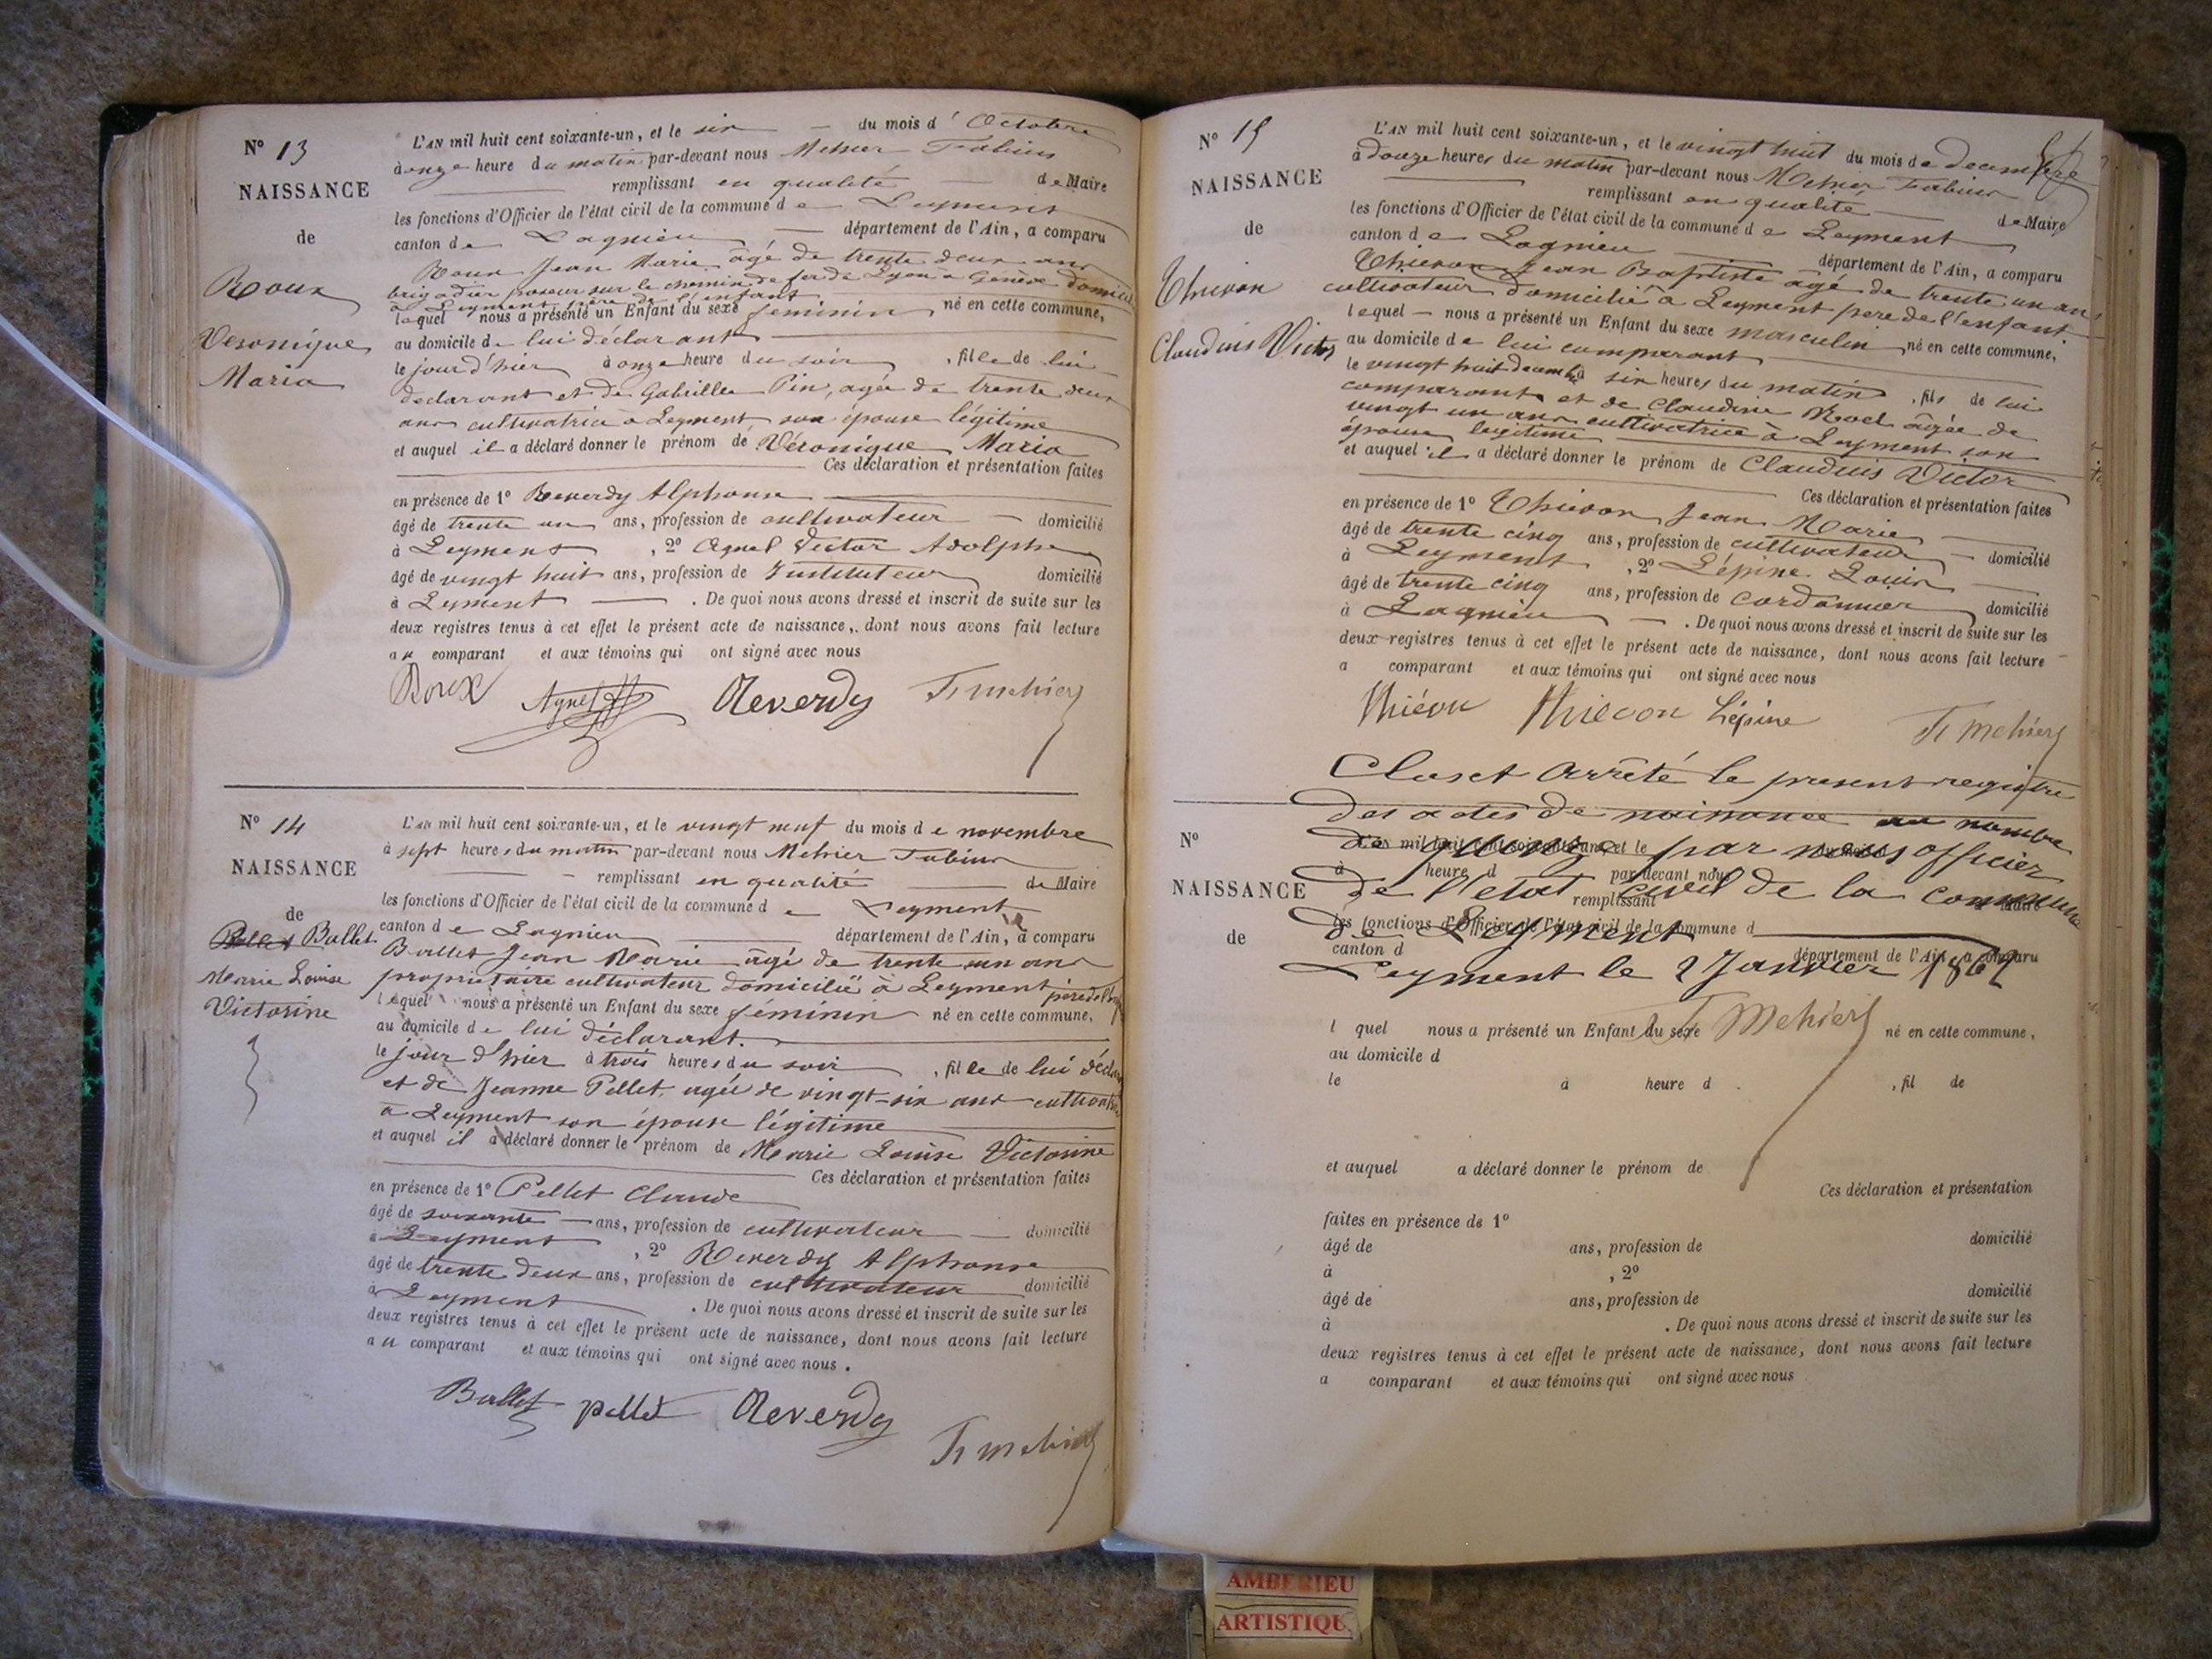 N° 13
NAISSANCE
de
Roux
Veronique
Maria
L'AN mil huit cent soixante-un, et le six du mois d'Octobre
à onze heure du matin par-devant nous Mehier Fabius
remplissant en qualité de Maire
les fonctions d'Officier de l'état civil de la commune de Leyment
canton de Lagnieu département de l'Ain, a comparu
Roux Jean Marie agé de trente deux ans
brigadier poseur sur le chemin de fer de Lyon a Genève domicilié
à Leyment père de l'enfant
lequel nous a présenté un Enfant du sexe féminin né en cette commune,
au domicile de lui déclarant
le jour d'hier à onze heure du soir, fille de lui
declarant et de Gabrielle Pin, agée de trente deux
ans cultivatrice à Leyment son épouse légitime
et auquel il a déclaré donner le prénom de Véronique Maria
Ces déclaration et présentation faites
en présence de 1° Reverdy Alphonse
âgé de trente un ans, profession de cultivateur domicilié
à Leyment, 2° Agnel Victor Adolphe
âgé de vingt huit ans, profession de Instituteur domicilié
à Leyment. De quoi nous avons dressé et inscrit de suite sur les
deux registres tenus à cet effet le présent acte de naissance, dont nous avons fait lecture
au comparant et aux témoins qui ont signé avec nous
Roux Agnel Reverdy F. Mehier
N° 14
NAISSANCE
de
Ballet
Marie Louise
Victorine
L'AN mil huit cent soixante-un, et le vingt neuf du mois de novembre
à sept heures du matin par-devant nous Mehier Fabius
remplissant en qualité de Maire
les fonctions d'Officier de l'état civil de la commune de Leyment
canton de Lagnieu département de l'Ain, a comparu
Ballet Jean Marie âgé de trente un ans
propriétaire cultivateur domicilié à Leyment père de l'
lequel nous a présenté un Enfant du sexe féminin né en cette commune,
au domicile de lui déclarant.
le jour d'hier à trois heures du soir, fille de lui
et de Jeanne Pellet, agée de vingt-six ans
à Leyment son épouse légitime
et auquel il a déclaré donner le prénom de Marie Louise Victorine
Ces déclaration et présentation faites
en présence de 1° Pellet Claude
âgé de soixante ans, profession de cultivateur domicilié
à Leyment, 2° Reverdy Alphonse
âgé de trente deux ans, profession de cultivateur domicilié
à Leyment. De quoi nous avons dressé et inscrit de suite sur les
deux registres tenus à cet effet le présent acte de naissance, dont nous avons fait lecture
au comparant et aux témoins qui ont signé avec nous.
Ballet pellet Reverdy
F. Mehier
N° 15
NAISSANCE
de
Thievon
Claudius Victor
L'AN mil huit cent soixante-un, et le vingt huit du mois de decembre
à douze heures du matin par-devant nous Mehier Fabius
remplissant en qualité de Maire
les fonctions d'Officier de l'état civil de la commune de Leyment
canton de Lagnieu département de l'Ain, a comparu
Thievon Jean Baptiste agé de trente un ans
cultivateur domicilié à Leyment pere de l'enfant
lequel nous a présenté un Enfant du sexe masculin né en cette commune,
au domicile de lui comparant
le vingt huit decembre à six heures du matin, fils de lui
comparant et de Claudine Roel âgée de
vingt un ans cultivatrice à Leyment son
épouse legitime
et auquel il a déclaré donner le prénom de Claudius Victor
Ces déclaration et présentation faites
en présence de 1° Thievon Jean Marie
âgé de trente cinq ans, profession de cultivateur domicilié
à Leyment, 2° Lépine Louis
âgé de trente cinq ans, profession de cordonnier domicilié
à Lagnieu. De quoi nous avons dressé et inscrit de suite sur les
deux registres tenus à cet effet le présent acte de naissance, dont nous avons fait lecture
a comparant et aux témoins qui ont signé avec nous
Thiévon Thievon Lépine
F. Mehier
Clos et arrêté le present registre
des actes de naissance au nombre
de quinze par nous officier
de l'etat civil de la commune
de Leyment
Leyment le 2 Janvier 1862
F. Mehier
N°
NAISSANCE
de
L'AN mil huit cent soixante-un, et le du mois d
à heure d par-devant nous
remplissant Maire
les fonctions d'Officier de l'état civil de la commune d
canton d département de l'Ain, a comparu
l quel nous a présenté un Enfant du sexe né en cette commune,
au domicile d
le à heure d , fil de
et auquel a déclaré donner le prénom de
Ces déclaration et présentation
faites en présence de 1°
âgé de ans, profession de domicilié
à , 2°
âgé de ans, profession de domicilié
à . De quoi nous avons dressé et inscrit de suite sur les
deux registres tenus à cet effet le présent acte de naissance, dont nous avons fait lecture
a comparant et aux témoins qui ont signé avec nous
AMBERIEU
ARTISTIQU